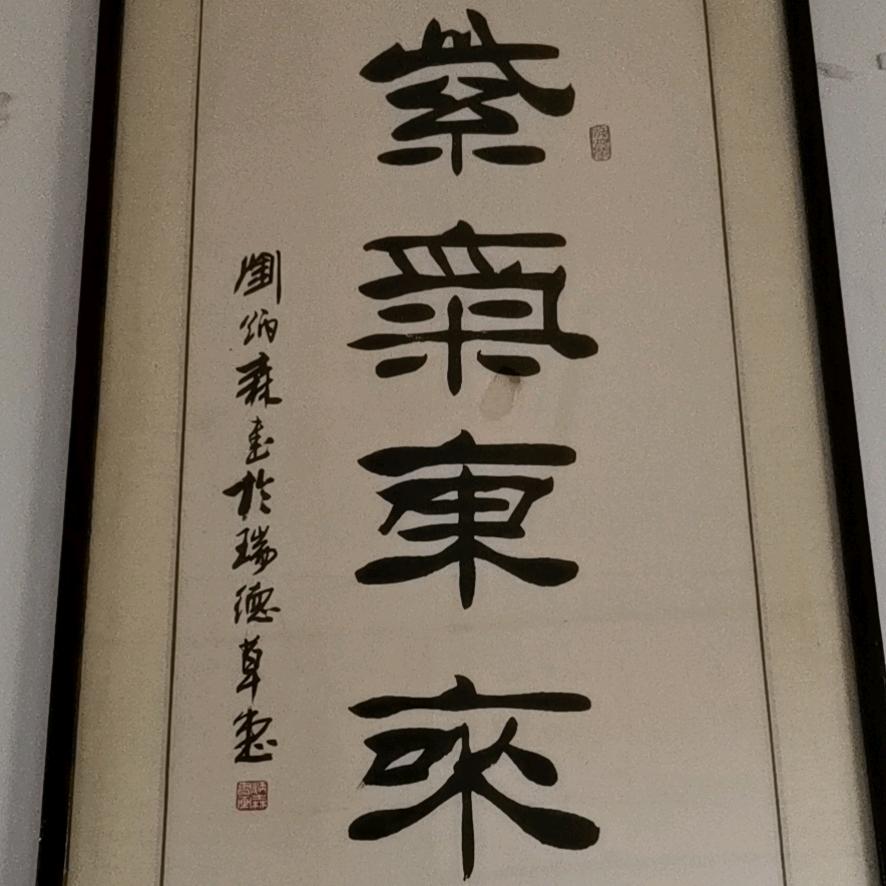 紫氣東來
劉炳森書於瑞德草堂